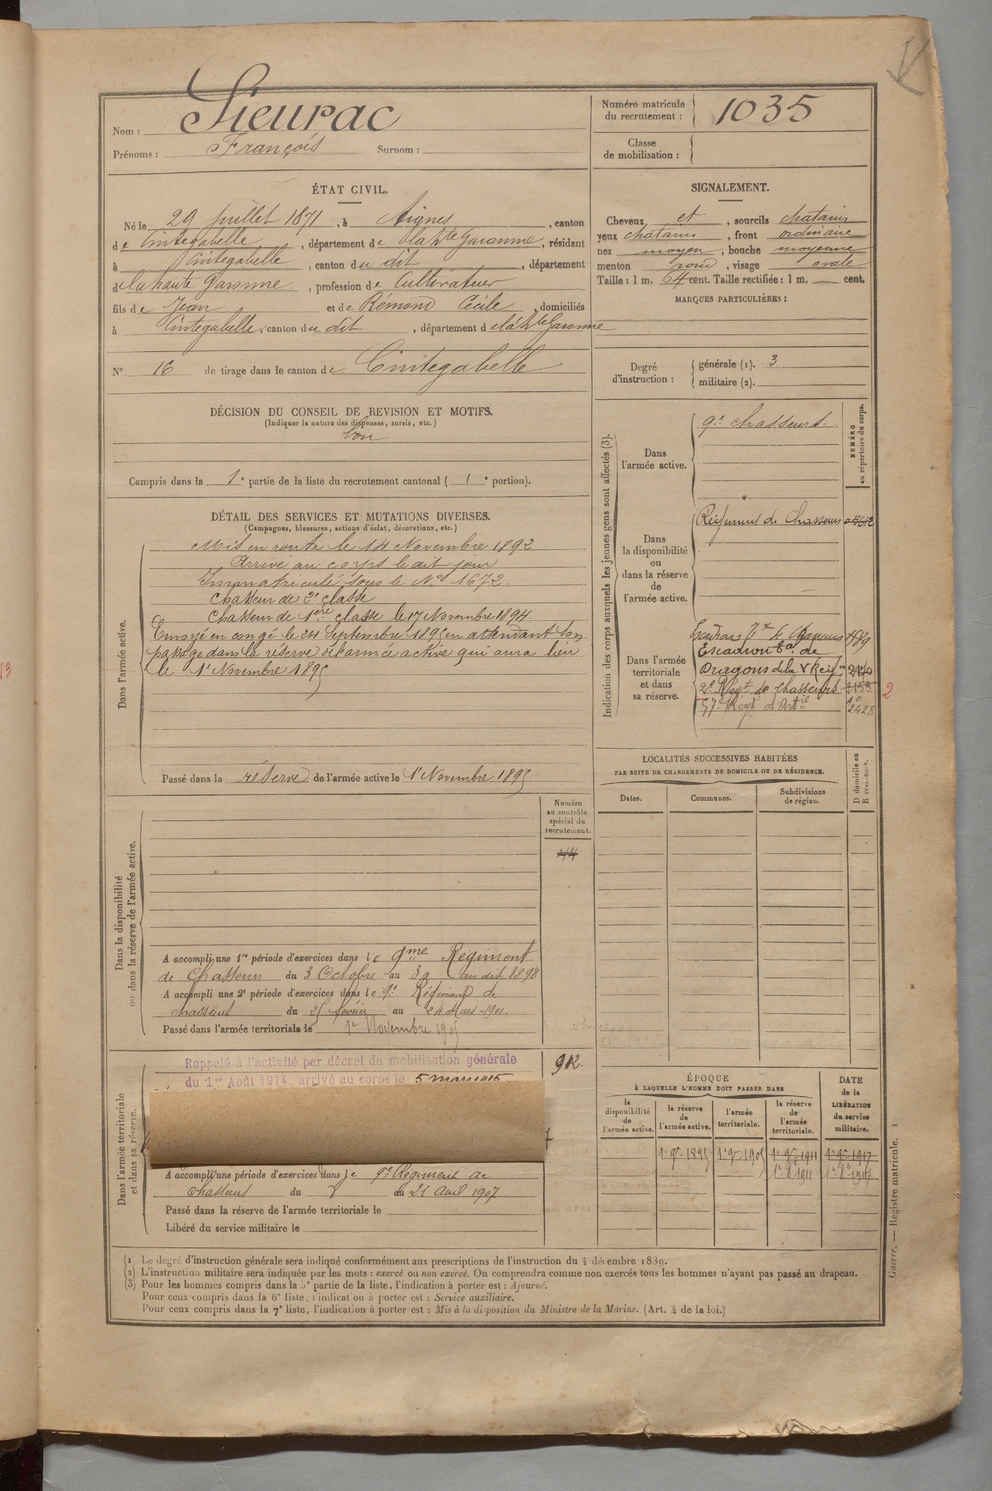 Nom : Sieurac
Prénoms : François Surnom :
Numéro matricule du recrutement : 1035
Classe de mobilisation :
ÉTAT CIVIL.
Né le 29 Juillet 1871, à Aignes, canton
de Cintegabelle, département de la Hte Garonne, résidant
à Cintegabelle, canton du dit, département
de la haute Garonne, profession de Cultivateur
fils de Jean et de Rémond Cécile, domiciliés
à Cintegabelle, canton du dit, département de la Hte Garonne
N° 16 de tirage dans le canton de Cintegabelle
SIGNALEMENT.
Cheveux et, sourcils chatains
yeux chatains, front ordinaire
nez moyen, bouche moyenne
menton rond, visage ovale
Taille : 1 m. 64 cent. Taille rectifiée : 1 m. — cent.
MARQUES PARTICULIÈRES :
Degré d'instruction : générale (1). 3
militaire (2).
DÉCISION DU CONSEIL DE REVISION ET MOTIFS.
(Indiquer la nature des dispenses, sursis, etc.)
bon
Compris dans la 1e partie de la liste du recrutement cantonal ( 1e portion).
DÉTAIL DES SERVICES ET MUTATIONS DIVERSES.
(Campagnes, blessures, actions d'éclat, décorations, etc.)
Dans l'armée active.
Mis en route le 14 Novembre 1892
Arrivé au corps le dit jour
Immatriculé sous le No 1672.
Chasseur de 2e classe
Chasseur de 1ère classe le 17 Novembre 1894
Envoyé en congé le 24 Septembre 1895 en attendant son
passage dans la réserve de l'armée active qui aura lieu
le 1er Novembre 1895
Passé dans la réserve de l'armée active le 1er Novembre 1895
Indication des corps auxquels les jeunes gens sont affectés (3).
NUMÉRO au répertoire du corps.
Dans l'armée active.
9e chasseurs
Dans la disponibilité ou dans la réserve de l'armée active.
Régiment de Chasseurs
Dans l'armée territoriale et dans sa réserve.
Escadron
Dragons de la
2e Regt de chasseurs
57e Regt d'Artie
2428
2
LOCALITÉS SUCCESSIVES HABITÉES
PAR SUITE DE CHANGEMENTS DE DOMICILE OU DE RÉSIDENCE.
Dates. Communes. Subdivisions de région. D domicile ou R résidence.
Dans la disponibilité ou dans la réserve de l'armée active.
Numéro au contrôle spécial du recrutement.
A accompli une 1re période d'exercices dans le 9me Régiment
de Chasseurs du 3 Octobre au 30 du dit 1898
A accompli une 2e période d'exercices dans le 9e Régiment de
chasseurs du 25 février au 24 Mars 1901.
Passé dans l'armée territoriale le 1er Novembre 1905
Dans l'armée territoriale et dans sa réserve.
Rappelé à l'activité par décret de mobilisation générale
du 1er Août 1914, arrivé au corps le 5 mars 1915
912.
A accompli une période d'exercices dans le 9e Régiment de
chasseurs du au 21 Avril 1907
Passé dans la réserve de l'armée territoriale le
Libéré du service militaire le
ÉPOQUE
À LAQUELLE L'HOMME DOIT PASSER DANS
la disponibilité de l'armée active. la réserve de l'armée active. l'armée territoriale. la réserve de l'armée territoriale.
DATE de la LIBÉRATION du service militaire.
(1) Le degré d'instruction générale sera indiqué conformément aux prescriptions de l'instruction du 4 décembre 1889.
(2) L'instruction militaire sera indiquée par les mots : exercé ou non exercé. On comprendra comme non exercés tous les hommes n'ayant pas passé au drapeau.
(3) Pour les hommes compris dans la 5e partie de la liste, l'indication à porter est : Ajourné.
Pour ceux compris dans la 6e liste, l'indication à porter est : Service auxiliaire.
Pour ceux compris dans la 7e liste, l'indication à porter est : Mis à la disposition du Ministre de la Marine. (Art. 4 de la loi.)
Guerre. — Registre matricule. 1